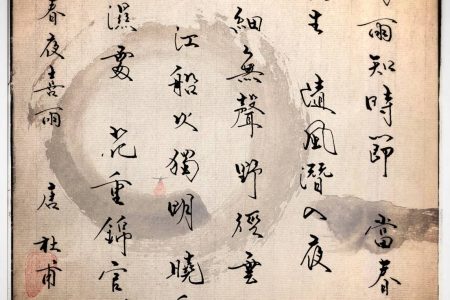 雨知時節 當春
生 隨風潛入夜
細無聲 野徑雲
江船火獨明 曉
濕處 花重錦官
春夜喜雨 唐 杜甫